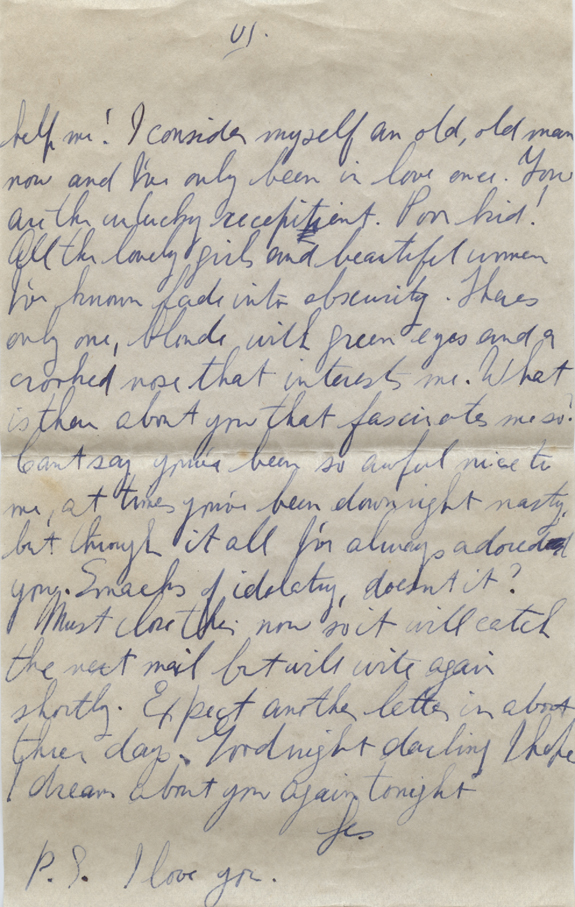 VI.
help me! I consider myself an old, old man
now and I've only been in love once. You
are the unlucky recepitient. Poor kid!
All the lovely girls and beautiful women
I've known fade into obscurity. Theres
only one, blonde with green eyes and a
crooked nose that interests me. What
is there about you that fascinates me so?
Cant say you've been so awful nice to
me, at times you've been downright nasty,
but through it all I've always adored
you. Smacks of idolatry, doesnt it?
Must close this now so it will catch
the next mail but will write again
shortly. Expect another letter in about
three days. Goodnight darling I hope
I dream about you again tonight
Les
P.S. I love you.